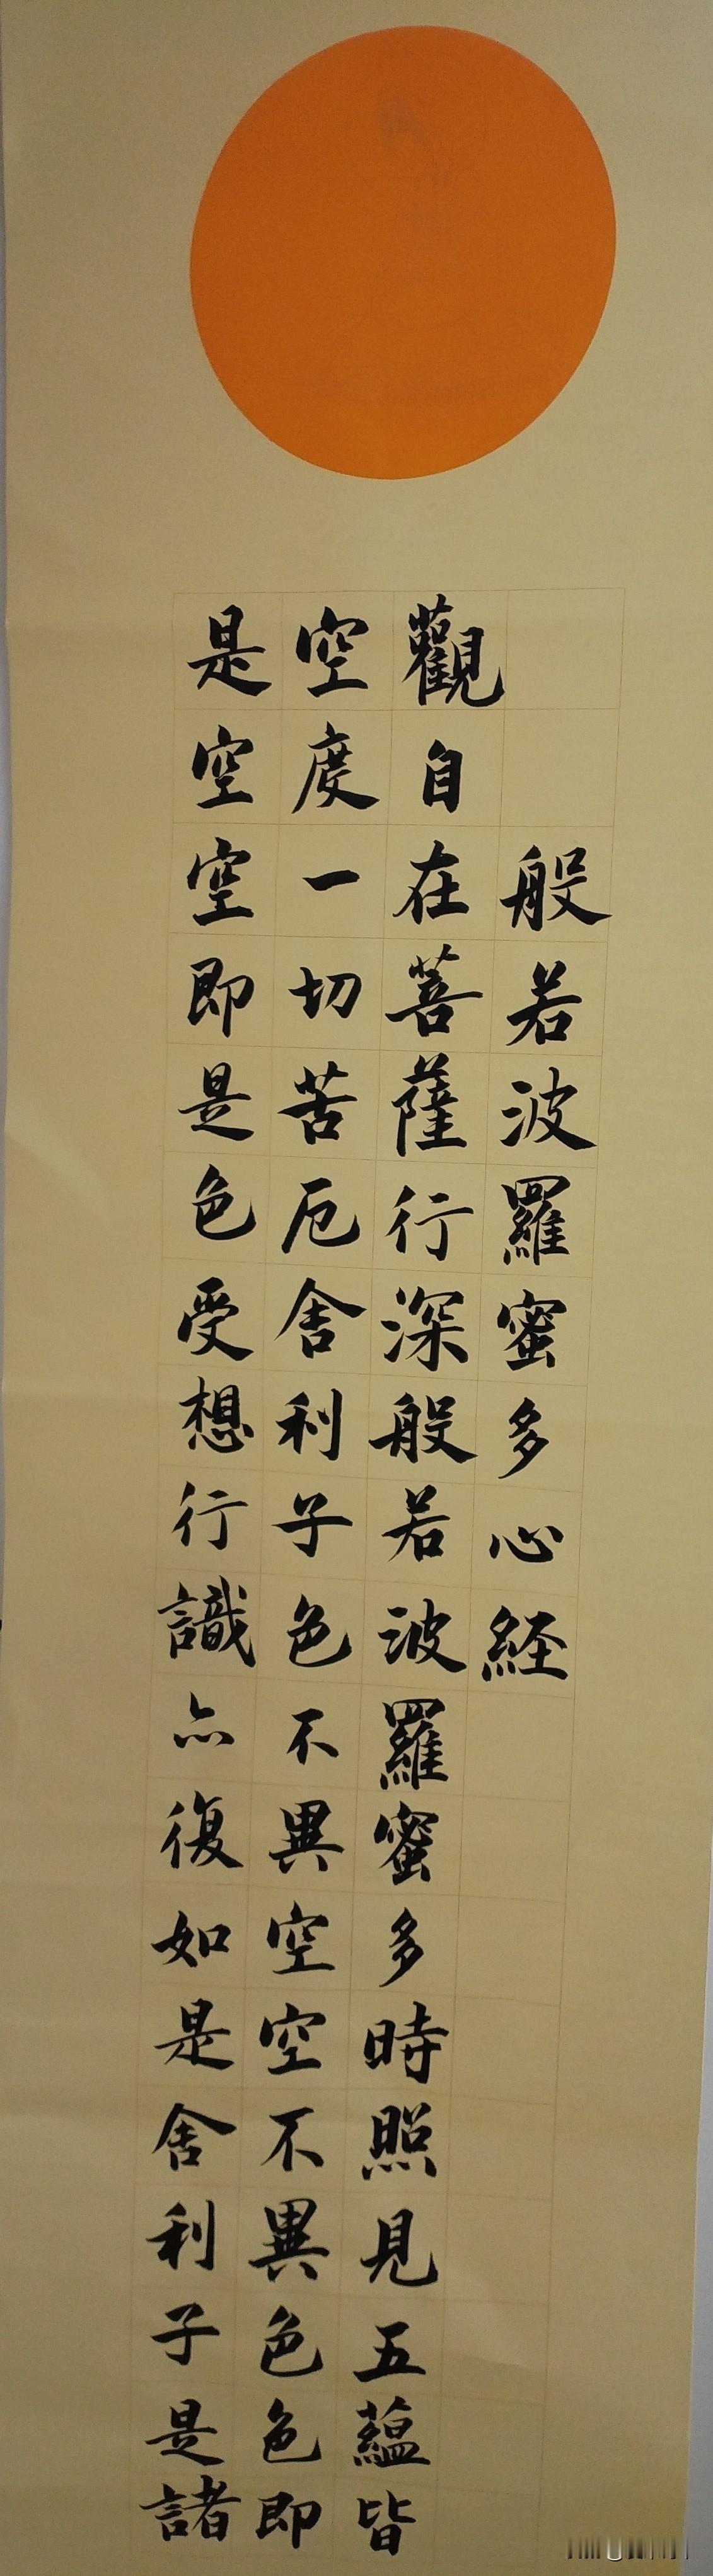 般若波羅蜜多心経
觀自在菩薩行深般若波羅蜜多時照見五蘊皆
空度一切苦厄舍利子色不異空空不異色色即
是空空即是色受想行識亦復如是舍利子是諸